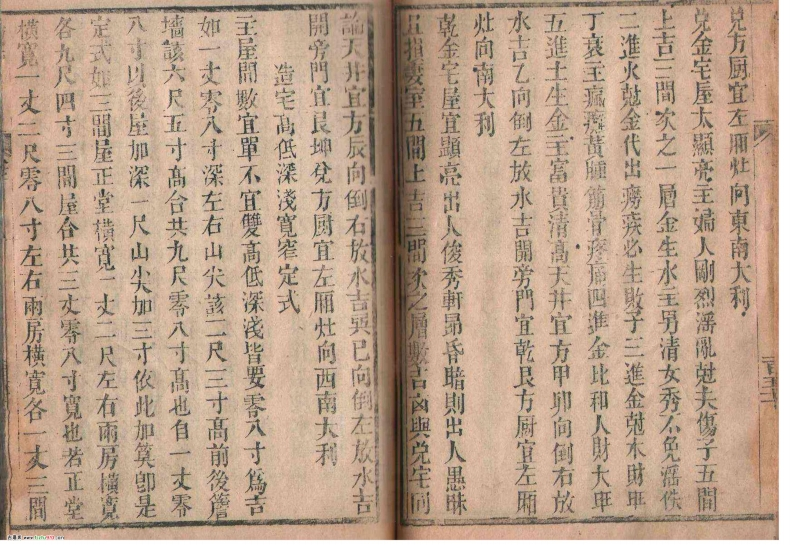 兌方厨宜左厢灶向東南大利
兌金宅屋太顯亮主婦人剛烈滛亂尅夫傷子五間
上吉三間次之一層金生水主男清女秀不免滛佚
二進火尅金代出癆疾必生敗子三進金尅木財丰
丁衰主瘋癆黃腫筋骨疼痛四進金比和人財大旺
五進土生金主富貴清高天井宜方甲卯向倒右放
水吉乙向倒左放水吉開旁門宜乾艮方厨宜左厢
灶向南大利
乾金宅屋宜顯亮出人俊秀軒昻昏暗則出人愚昧
且損妻室五間上吉三間次之層數吉凶與兌宅同
論天井宜方辰向倒右放水吉巽巳向倒左放水吉
開旁門宜艮坤兌方厨宜左厢灶向西南大利
造宅高低深淺寬窄定式
主屋間數宜單不宜雙高低深淺皆要零八寸爲吉
如一丈零八寸深左右山尖該二尺三寸高前後簷
墻該六尺五寸高合共九尺零八寸高也自一丈零
八寸以後屋加深一尺山尖加三寸依此加算卽是
定式如三間屋正堂橫寬一丈二尺左右兩房橫寬
各九尺四寸三間屋合共三丈零八寸寬也若正堂
橫寬一丈二尺零八寸左右兩房橫寬各一丈三間